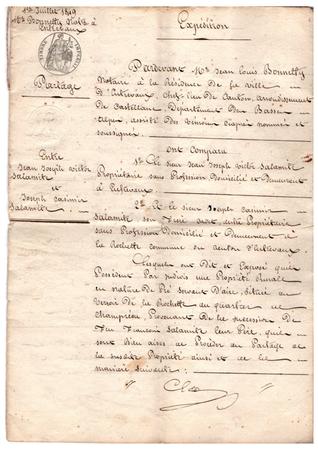 1er Juillet 1849
Mtre Bonnetty Notre à
Entrevaux
Expédition
Partage
Entre
Jean Joseph Victor
Salamite
et
Joseph Casimir
Salamite
Pardevant Me Jean Louis Bonnetty
Notaire à la Résidence de la ville
d'Entrevaux, chef-lieu de Canton, arrondissement
de Castellane, Département des Basses
Alpes, assisté des témoins ci-après nommés et
soussignés
ont comparu
1° Le sieur Jean Joseph Victor Salamite
Propriétaire sans Profession Domicilié et Demeurant
à Entrevaux
2° Le sieur Joseph Casimir
Salamite son frère aussi Propriétaire
sans Profession Domicilié et Demeurant à
la Rochette commune du canton d'Entrevaux
Lesquels ont Dit et Exposé qu'ils
Possèdent Par indivis une Propriété rurale
en nature de Pré servant D'aire, située au
terroir De la Rochette au quartier de
Champréau, Provenant De la succession De
feu François Salamite leur Père, qu'ils
sont bien aises de Procéder au Partage de
la susdite Propriété ainsi et de la
manière suivante :